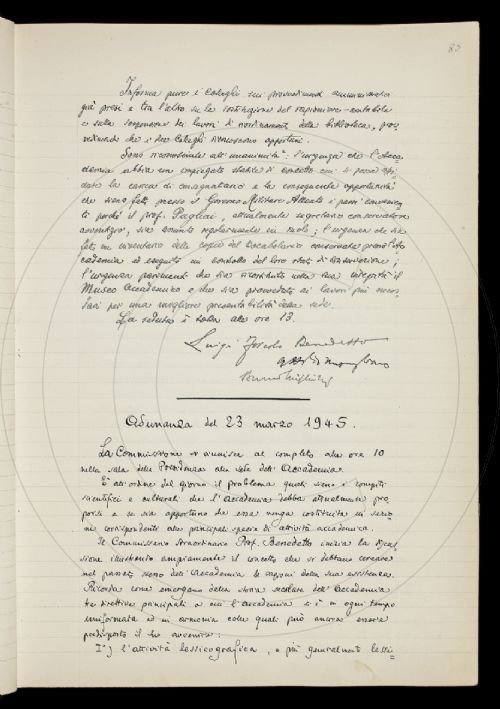 82
Informa pure i Colleghi sui provvedimenti amministrativi
già presi e tra l'altro su la sostituzione del ragioniere-contabile
e sulla sospensione dei lavori di riordinamento della biblioteca, prov-
vedimenti che i due Colleghi riconoscono opportuni.
Sono riconosciute all'unanimità: l'urgenza che l'Acca-
demia abbia un impiegato stabile di concetto cui si possa affi-
dare la carica di consegnatario e la conseguente opportunità
che siano fatti presso il Governo Militare Alleato i passi convenien-
ti perché il prof. Pagliai, attualmente segretario conservatore
avventizio, sia assunto regolarmente in ruolo; l'urgenza che sia
fatto un inventario delle copie del Vocabolario conservate presso l'Ac-
cademia ed eseguito un controllo del loro stato di conservazione;
l'urgenza parimenti che sia ricostituito nella sua integrità il
Museo Accademico e che sia provveduto ai lavori più neces-
sari per una migliore presentabilità della sede.
La seduta è tolta alle ore 13.
Luigi Foscolo Benedetto
Bruno Migliorini
Adunanza del 23 marzo 1945.
La Commissione si riunisce al completo alle ore 10
nella sala della Presidenza alla sede dell'Accademia.
È all'ordine del giorno il problema quali siano i compiti
scientifici e culturali che l'Accademia debba attualmente pro-
porsi e se sia opportuno che essa venga costituita in sezio-
ni corrispondenti alle principali specie di attività accademica.
Il Commissario Straordinario Prof. Benedetto inizia la discus-
sione illustrando ampiamente il concetto che si debbano cercare
nel passato stesso dell'Accademia le ragioni della sua esistenza.
Ricorda come emergano dalla storia secolare dell'Accademia
tre direttive principali a cui l'Accademia si è in ogni tempo
uniformata ed in armonia colle quali può ancora essere
predisposto il suo avvenire:
I°) l'attività lessicografica, o più generalmente lessi-